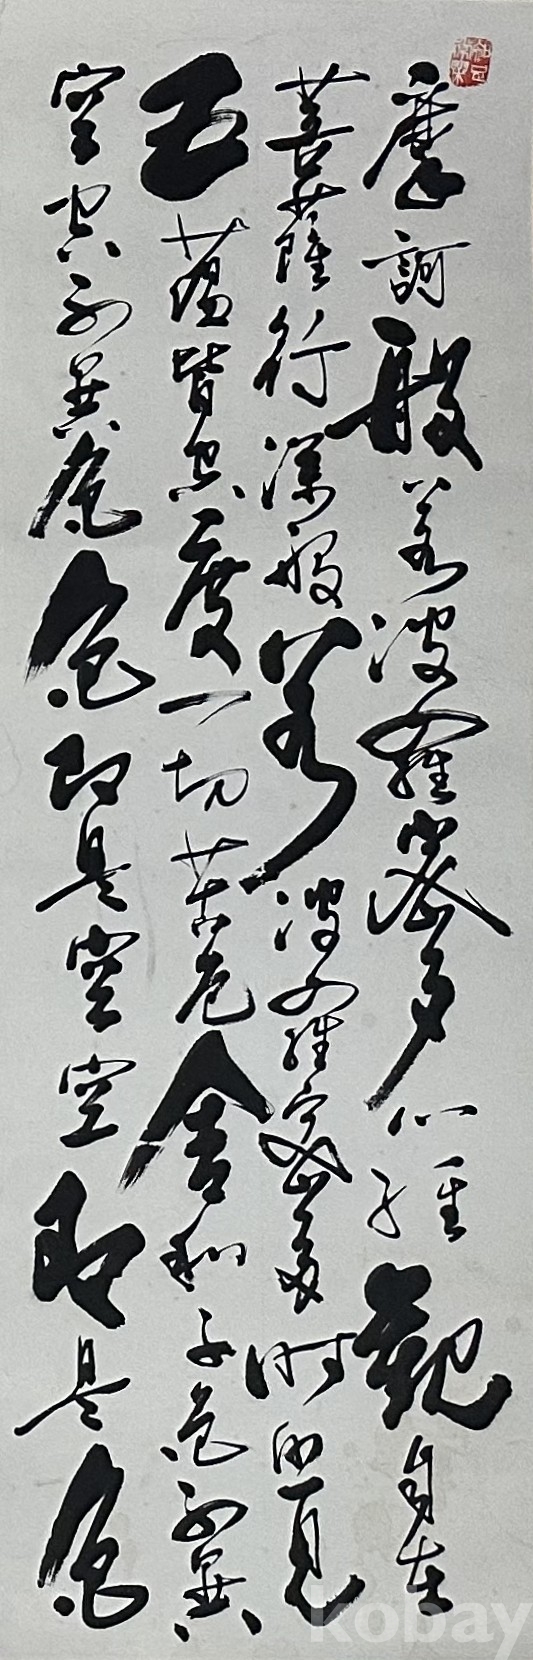 摩訶般若波羅密多心經觀自在
菩薩行深般若波羅密多時照見
五蘊皆空度一切苦厄舍利子色不異
空空不異色色即是空空即是色
kobay